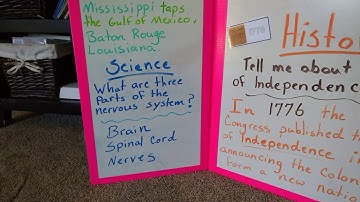 Mississippi taps
the Gulf of Mexico,
Baton Rouge
Louisiana
Science
What are three
parts of the
nervous system?
Brain
Spinal Cord
Nerves
1776
Histo
Tell me about
of Independenc
In 1776 the
Congress published th
of Independence
announcing the colon
form a new natio